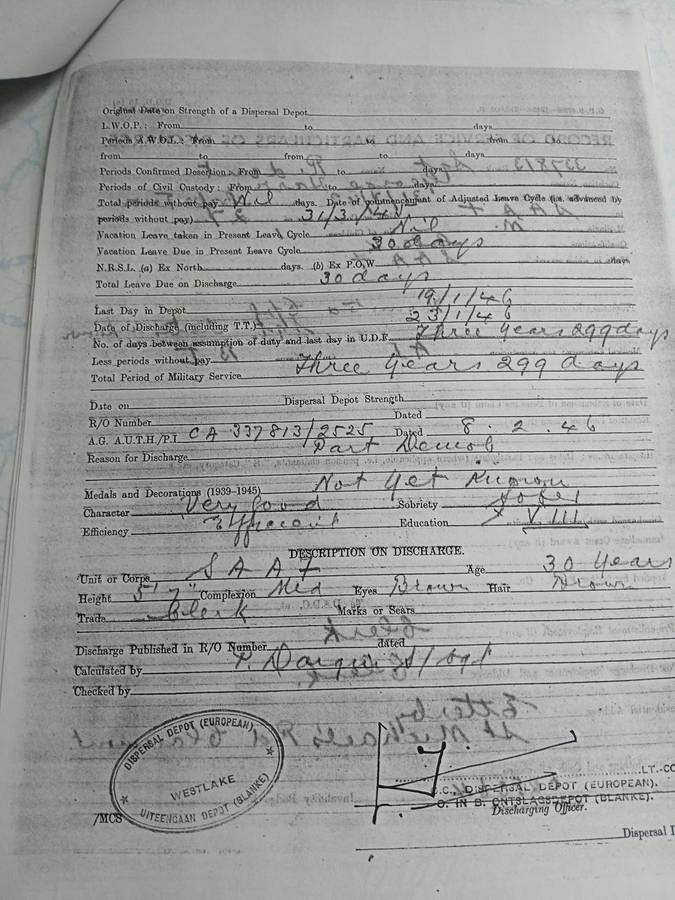 Original Date on Strength of a Dispersal Depot
L.W.O.P.: From to days
Periods A.W.O.L.: From to from to
from to from to days
Periods Confirmed Desertion: From to days
Periods of Civil Custody: From to days
Total periods without pay Nil days. Date of commencement of Adjusted Leave Cycle (i.e. advanced by
periods without pay) 31/3/45
Vacation Leave taken in Present Leave Cycle Nil
Vacation Leave Due in Present Leave Cycle 30 days
N.R.S.L. (a) Ex North days. (b) Ex P.O.W. days
Total Leave Due on Discharge 30 days
Last Day in Depot 19/1/46
Date of Discharge (including T.T.) 23/1/46
No. of days between assumption of duty and last day in U.D.F. Three Years 299 days
Less periods without pay
Total Period of Military Service Three Years 299 days
Date on Dispersal Depot Strength
R/O Number Dated
A.G. AUTH/P.I. CA 337813/2525 Dated 8.2.46
Reason for Discharge Part Demob
Medals and Decorations (1939-1945) Not Yet Known
Character Very Good Sobriety Sober
Efficiency Efficient Education VIII
DESCRIPTION ON DISCHARGE.
Unit or Corps S A A F Age 30 Years
Height 5' 7" Complexion Med Eyes Brown Hair Brown
Trade Clerk Marks or Scars
Discharge Published in R/O Number dated
Calculated by S/Sgt
Checked by
DISPERSAL DEPOT (EUROPEAN)
WESTLAKE
UITEENGAAN DEPOT (BLANKE)
/MCS
LT.-CO
O.C., DISPERSAL DEPOT (EUROPEAN).
O. IN B. ONTSLAGSDEPOT (BLANKE).
Discharging Officer.
Dispersal